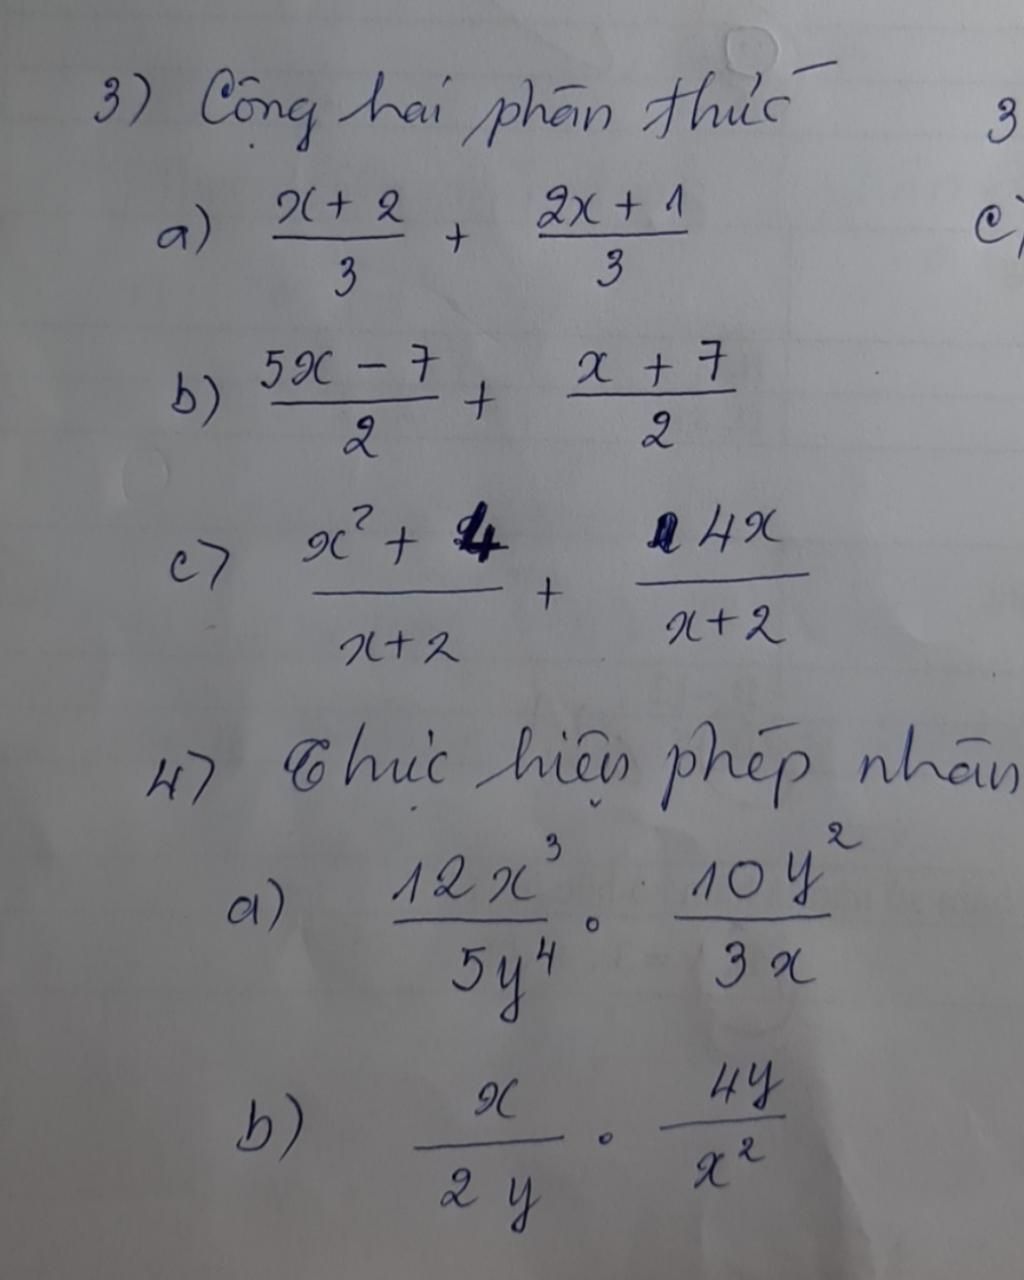 3) Cộng hai phân thức
a) (x + 2)/3 + (2x + 1)/3
b) (5x - 7)/2 + (x + 7)/2
c) (x² + 4)/(x+2) + 4x/(x+2)
4) Thực hiện phép nhân
a) 12x³/5y⁴ . 10y²/3x
b) x/2y . 4y/x²
3
c)